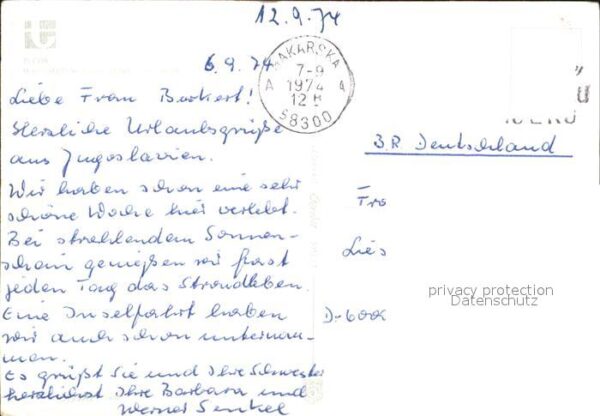 12.9.74
6.9.74
MAKARSKA
7-9
1974
12
A A
58300
Liebe Frau Burkert!
Herzliche Urlaubsgrüße
aus Jugoslawien.
Wir haben schon eine sehr
schöne Woche hier verlebt.
Bei strahlendem Sonnen-
schein genießen wir fast
jeden Tag das Strandleben.
Eine Inselfahrt haben
wir auch schon unternom-
men.
Es grüßt Sie und Ihre Schwester
herzlichst Ihre Barbara und
Werner Senkel
B.R. Deutschland
Fra
Lies
privacy protection
Datenschutz
D-600